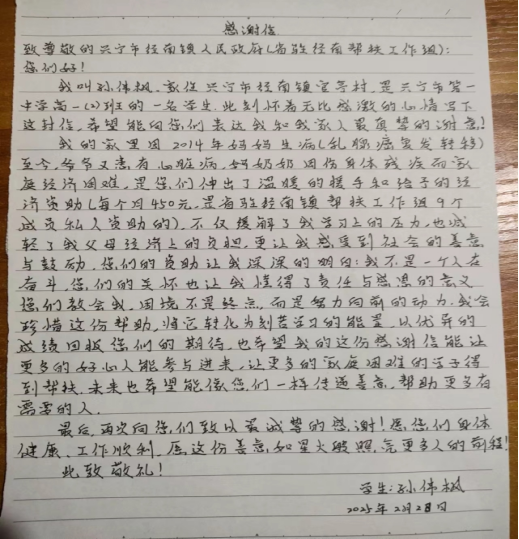 感谢信
致尊敬的兴宁市径南镇人民政府(省驻径南帮扶工作组):
您们好!
我叫孙伟枫,家住兴宁市径南镇宫等村,是兴宁市第一
中学高一(2)班的一名学生.此刻怀着无比感激的心情写下
这封信,希望能向您们表达我和我家人最真挚的谢意!
我的家里因2014年妈妈生病(乳腺癌复发转移)
至今,爷爷又患有心脏病,奶奶因伤身体残疾而家
庭经济困难,是您们伸出了温暖的援手和给予的经
济资助(每个月450元,是省驻径南镇帮扶工作组9个
成员私人资助的),不仅缓解了我学习上的压力,也减
轻了我父母经济上的负担,更让我感受到社会的善意
与鼓励.您们的资助让我深深的明白:我不是一个人在
奋斗,您们的关怀也让我懂得了责任与感恩的意义
您们教会我,困境不是终点,而是努力向前的动力.我会
珍惜这份帮助,将它转化为刻苦学习的能量,以优异的
成绩回报您们的期待,也希望我的这份感谢信能让
更多的好心人能参与进来,让更多的家庭困难的学子得
到帮扶.未来也希望能像您们一样传递善意,帮助更多有
需要的人.
最后,再次向您们致以最诚挚的感谢!愿您们身体
健康、工作顺利.愿这份善意,如星火般照亮更多人的前程!
此致敬礼!
学生:孙伟枫
2025年2月28日